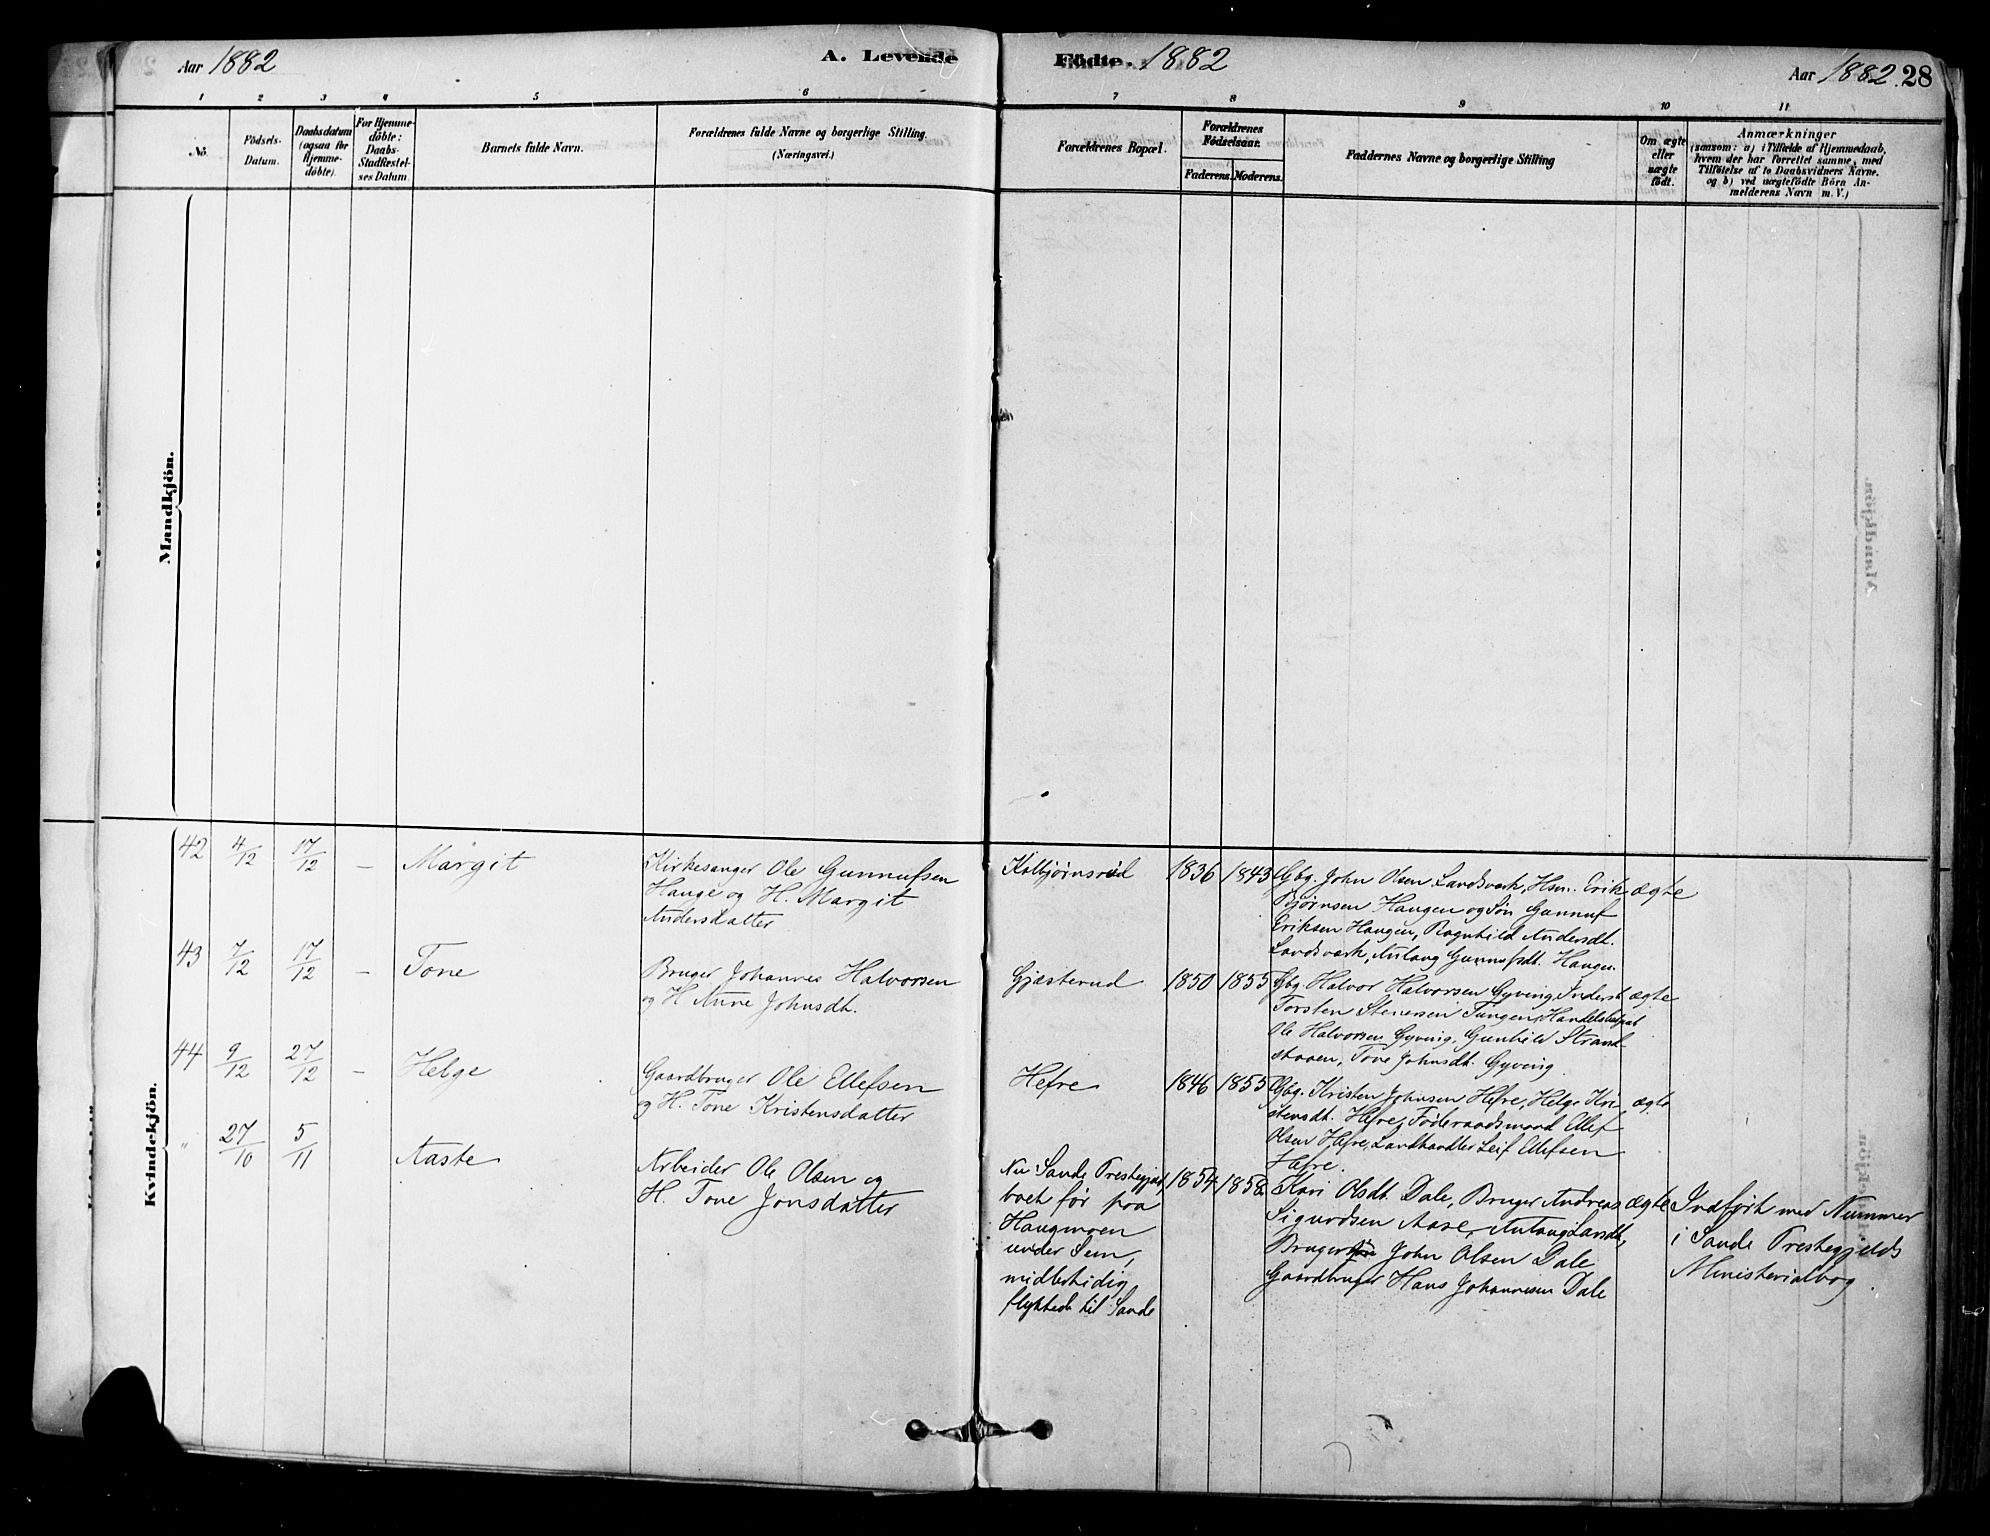 Aar 1882
A. Levende
Födte. 1882
Aar 1882. 28
1 2 3 4 5 6 7 8 9 10 11
No.
Födsels-
Datum.
Daabsdatum
(ogsaa for
Hjemme-
döbte).
For Hjemme-
döbte:
Daabs-
Stadfæstel-
ses Datum.
Barnets fulde Navn.
Forældrenes fulde Navne og borgerlige Stilling.
(Næringsvei.)
Forældrenes Bopæl.
Forældrenes
Födselsaar.
Faderens. Moderens.
Faddernes Navne og borgerlige Stilling
Om ægte
eller
uægte
födt.
Anmærkninger
(saasom: a) i Tilfælde af Hjemmedaab,
hvem der har forrettet samme, med
Tilföielse af to Daabsvidners Navne.
og b) ved uægtefödte Börn An-
melderens Navn m.V.)
Mandkjön.
Kvindekjön.
42 4/12 17/12 – Margit
Kirkesanger Ole Gunnufsen
Hauge og H. Margit
Andersdatter
Kolbjørnsrud 1836 1843
Gbg. John Olsen Landsverk, Hsm. Erik
Bjørnsen Haugen og Søn Gunnuf
Eriksen Haugen, Ragnhild Andersdt.
Landsverk, Anlaug Gunnufsdt. Haugen
ægte
43 7/12 17/12 – Tone
Bruger Johannes Halvorsen
og H. Anne Johnsdt.
Gjæsterud 1850 1855
Gbg. Halvor Halvorsen Gyving, Inderst
Torsten Stenersen Tungen, Handelsbetjent
Ole Halvorsen Gyving, Gunhild Strand-
staaen, Tone Johnsdt. Gyving
ægte
44 9/12 27/12 – Helge
Gaardbruger Ole Ellefsen
og H. Tone Kristensdatter
Hefre 1846 1855
Gbg. Kristen Johnsen Hefre, Helge Kri-
stensdt. Hefre, Føderaadsmand Ellef
Olsen Hefre, Landhandler Leif Ellefsen
Hefre.
ægte
" 27/10 5/11 Aaste
Arbeider Ole Olsen og
H. Tone Jonsdatter
Nu Sande Prestegjæld,
boet før paa
Haugmoen
under Sem,
midlertidig
flyttede til Sande
1854 1858
Kari Olsdt. Dale, Bruger Andreas
Sigurdsen Aase, Anlaug Larsdt,
Bruger John Olsen Dale
Gaardbruger Hans Johannesen Dale
ægte
Indført med Nummer
i Sande Prestegjelds
Ministerialbog